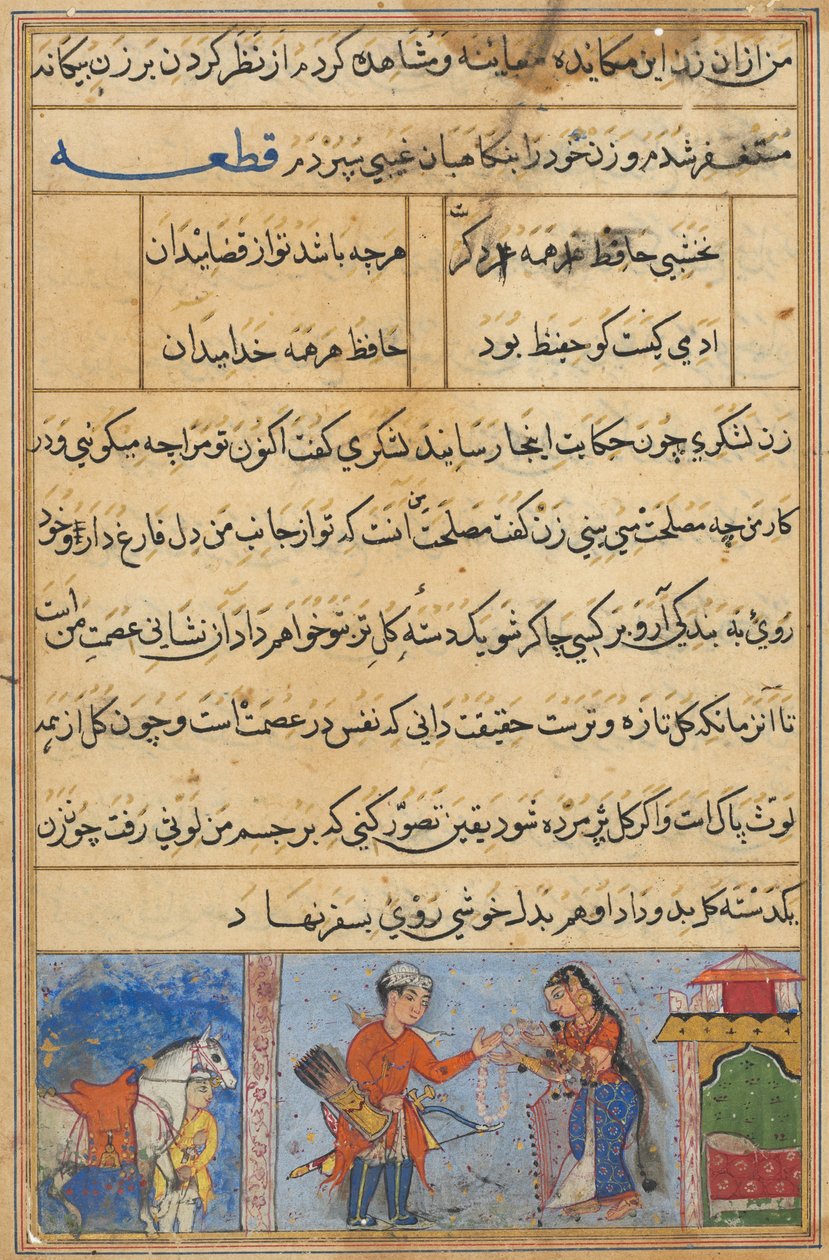 من ازان زن این مکایده معاینه و مشاهده کردم از نظر کردن بر زن بیکانه
مستغفر شدم و زن خود را بنکاهبان غیبی سپردم قطعه
نخشبی حافظ همه هرچه باشد تو از قضا میدان
ادمی کیست کو حفیظ بود حافظ هر همه خدا میدان
زن لشکری چون حکایت اینجا رسانید لشکری کفت اکنون تو مرا چه میکوئی و در
کار من چه مصلحت می بینی زن کفت مصلحت من انست که تو از جانب من دل فارغ داری و خود
روی به بندکی آر و بر کسی چاکر شو یکدسته کل تر بتو خواهم داد ان نشانی عصمت من است
تا آنزمانکه کل تازه و ترست حقیقت دانی که نفس در عصمت است و چون کل از همه
لوث پاک است و اکر کل پژمرده شود یقین تصور کنی که بر جسم من لوثی رفت چون زن
یکدسته کل بدو داد او هم بدل خوشی روی بسفر نهاد